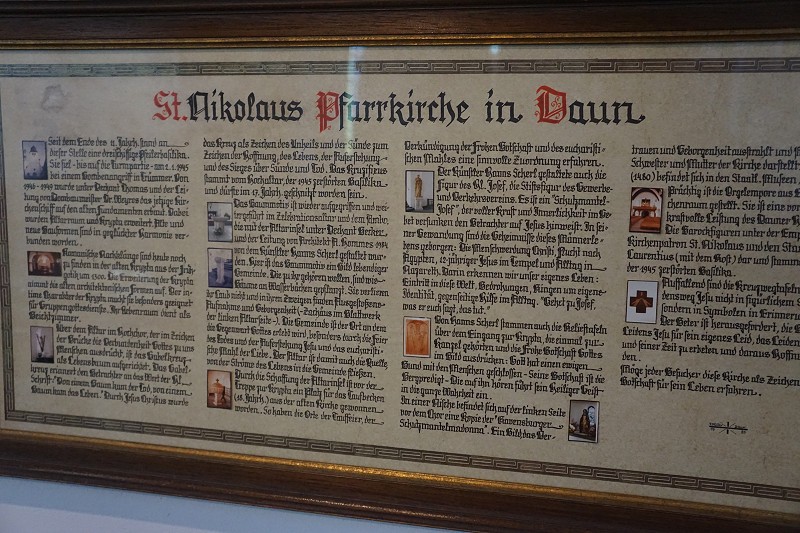 St. Nikolaus Pfarrkirche in Daun
Seit dem Ende des 11. Jahrh. stand an
dieser Stelle eine dreischiffige Pfeilerbasilika.
Sie fiel - bis auf die Turmpartie - am 2. 1. 1945
bei einem Bombenangriff in Trümmer. Von
1946 - 1949 wurde unter Dechant Thomas und der Lei-
tung von Dombaumeister Dr. Weyres das jetzige Kir-
chenschiff auf den alten Fundamenten erbaut. Dabei
wurden Turm und Krypta erweitert. Alte und
neue Bauformen sind in geglückter Harmonie ver-
bunden worden.
Romanische Nachklänge sind heute noch
zu finden in der alten Krypta aus der Früh-
zeit um 1500. Die Erweiterung der Krypta
nimmt die alten architektonischen Formen auf. Der in-
time Charakter der Krypta macht sie besonders geeignet
für Gruppengottesdienste. Ihr Nebenraum dient als
Beichtzimmer.
Über dem Altar im Hochchor, der im Zeichen
der Brücke die Verbundenheit Gottes zu uns
Menschen ausdrückt, ist das Gabelkreuz
als Lebensbaum aufgerichtet. Das Gabel-
kreuz erinnert den Betrachter an das Wort der Hl.
Schrift: "Von einem Baum kam der Tod, von einem
Baum kam das Leben." Durch Jesus Christus wurde
das Kreuz als Zeichen des Unheils und der Sünde zum
Zeichen der Hoffnung, des Lebens, der Auferstehung
und des Sieges über Sünde und Tod. Das Kruzifixus
stammt vom Hochaltar, der 1945 zerstörten Basilika
und dürfte im 17. Jahrh. geschnitzt worden sein.
Das Baummotiv ist wieder aufgegriffen und wei-
tergeführt im Zelebrationsaltar und dem Ambo,
die mit der Altarinsel unter Dechant Becker
und der Leitung von Architekt A. Hommes 1984
von dem Künstler Hanns Scherl gestaltet wur-
den. Hier ist das Baummotiv ein Bild lebendiger
Gemeinde. Die zu ihr gehören wollen, sind wie
Bäume an Wasserbächen gepflanzt. Sie verlieren
ihr Laub nicht und in ihren Zweigen finden Ausgestoßene
Aufnahme und Geborgenheit (Zachäus im Blattwerk
der linken Altarseite). Die Gemeinde ist der Ort an dem
die Gegenwart Gottes erlebt wird, besonders durch die Feier
des Todes und der Auferstehung Jesu und das eucharisti-
sche Mahl der Liebe. Der Altar ist damit auch die Quelle,
der Ströme des Lebens in die Gemeinde fließen.
Durch die Schaffung der Altarinsel ist vor der
Treppe zur Krypta ein Platz für das Taufbecken
(18. Jahrh.) aus der alten Kirche gewonnen
worden. So haben die Orte der Tauffeier, der
Verkündigung der Frohen Botschaft und des eucharisti-
schen Mahles eine sinnvolle Zuordnung erfahren.
Der Künstler Hanns Scherl gestaltete auch die
Figur des Hl. Josef, die Stiftsfigur des Gewerbe-
und Verkehrsvereins. Es ist ein "Schutzmantel-
Josef", der voller Kraft und Innerlichkeit im Ge-
bet versunken den Betrachter auf Jesus hinweist. In sei-
ner Gewandung sind die Geheimnisse dieses Männerle-
bens geborgen: Die Menschwerdung Christi, Flucht nach
Ägypten, 12-jähriger Jesus im Tempel und Alltag in
Nazareth. Darin erkennen wir unser eigenes Leben:
Eintritt in diese Welt, Bedrohungen, Ringen um eigene
Identität, gegenseitige Hilfe im Alltag. "Gehet zu Josef,
was er euch sagt, das tut."
Von Hanns Scherl stammen auch die Relieftafeln
über dem Eingang zur Krypta, die einmal zur
Kanzel gehörten und die Frohe Botschaft Gottes
im Bild ausdrücken: Gott hat einen ewigen
Bund mit den Menschen geschlossen - Seine Botschaft ist die
Bergpredigt - Die auf ihn hören führt sein Heiliger Geist
in die ganze Wahrheit ein.
In einer Nische befindet sich auf der linken Seite
vor dem Chor eine Kopie der "Ravensburger
Schutzmantelmadonna". Ein Bild, das Ver-
trauen und Geborgenheit ausstrahlt und
Schwester und Mutter der Kirche darstellt.
(1480) befindet sich in den Staatl. Museen
Prächtig ist die Orgelempore aus
chenraum gestellt. Sie ist eine vor
kraftvolle Leistung des Dauner
Die Barockfiguren unter der Emp
Kirchenpatron St. Nikolaus und den Sta
Laurentius (mit dem Rost) dar und stamm
der 1945 zerstörten Basilika.
Auffallend sind die Kreuzweghafeln
densweg Jesu nicht in figürlichen
sondern in Symbolen in Erinnerung
Der Beter ist herausgefordert, die
Leidens Jesu für sein eigenes Leid, das Leiden
und seiner Zeit zu erbeten und daraus Hoffn
den.
Möge jeder Besucher diese Kirche als Zeichen
Botschaft für sein Leben erfahren.